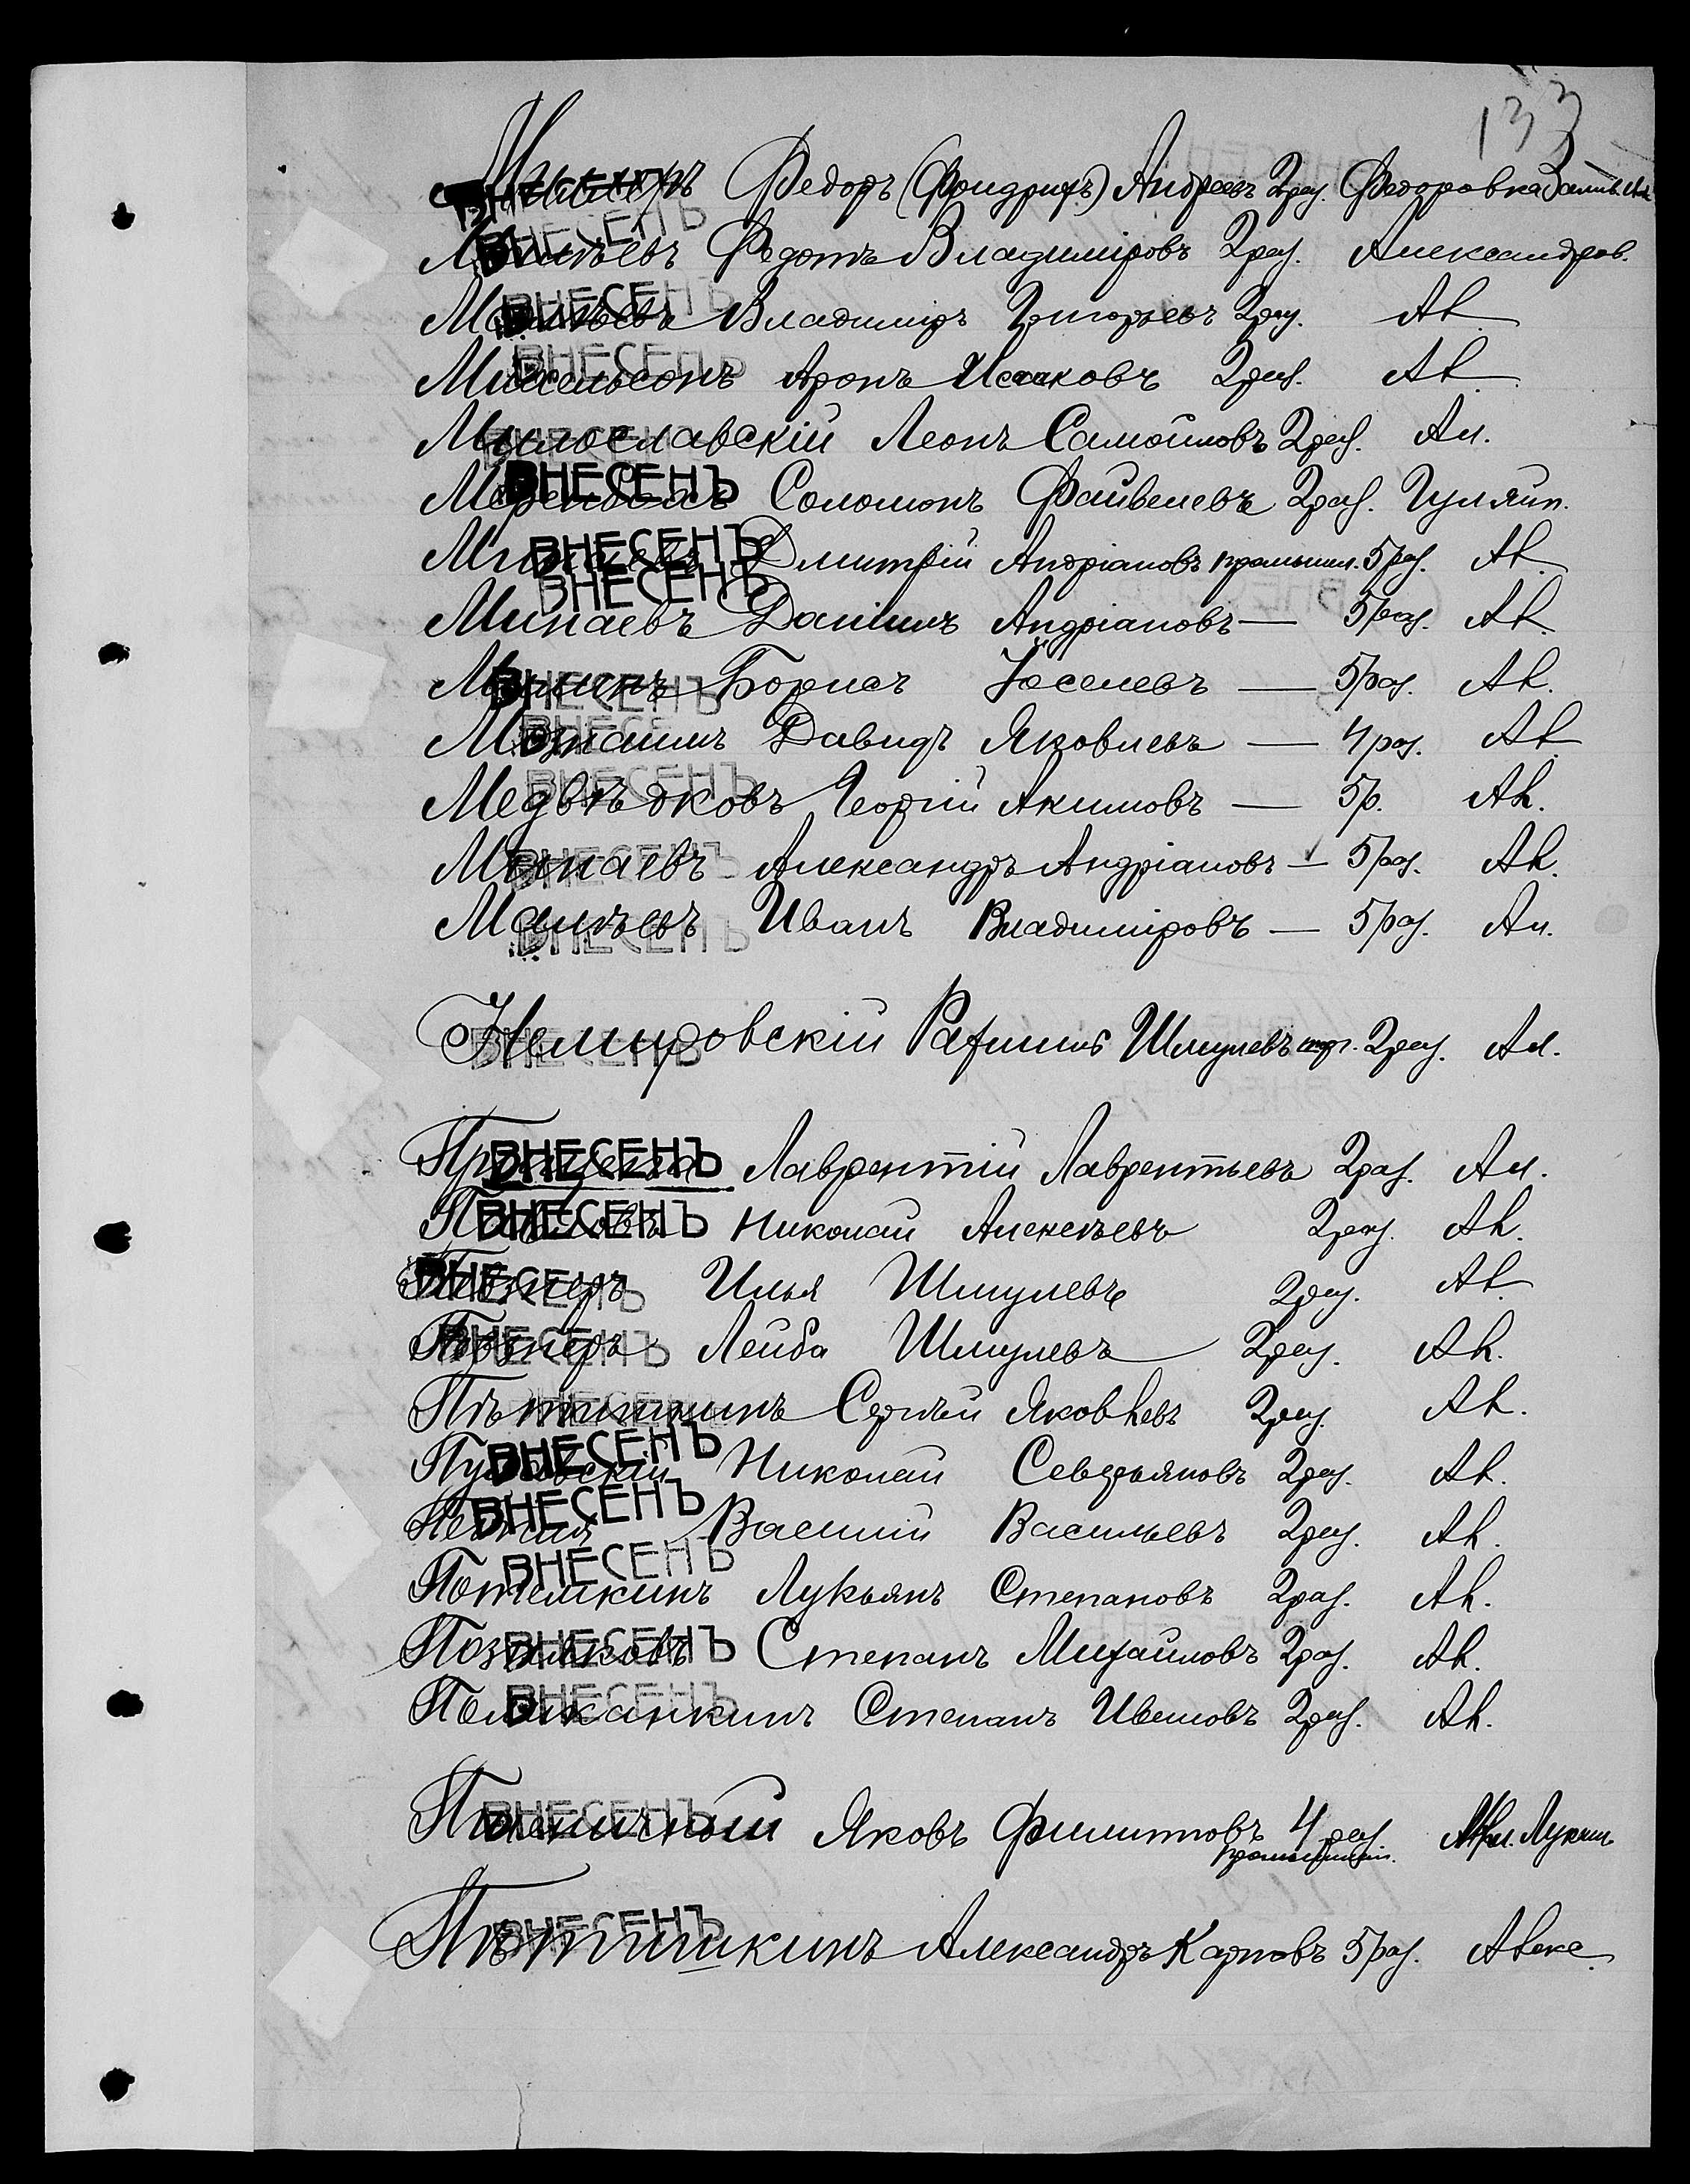 133
Федоръ (Фридрихъ) Андреевъ 2раз. Федоровка
ВНЕСЕНЪ
ВНЕСЕНЪ
Малѣевъ Федотъ Владиміровъ 2раз. Александров.
ВНЕСЕНЪ
Малѣевъ Владимиръ Григорьевъ 2раз. Ал.
ВНЕСЕНЪ
Михельсонъ Аронъ Исааковъ 2раз. Ал.
Милославскій Леонъ Самойловъ 2раз. Ал.
ВНЕСЕНЪ
ВНЕСЕНЪ
Соломонъ Файвелевъ 2раз. Гуляйп.
ВНЕСЕНЪ
Минаевъ Дмитрій Андріановъ промышл. 5раз. Ал.
ВНЕСЕНЪ
Минаевъ Даніилъ Андріановъ — 5раз. Ал.
ВНЕСЕНЪ
Борисъ Іоселевъ — 5раз. Ал.
ВНЕСЕНЪ
Давидъ Яковлевъ — 4раз. Ал.
ВНЕСЕНЪ
Медвѣдковъ Георгій Акимовъ — 5р. Ал.
ВНЕСЕНЪ
Минаевъ Александръ Андріановъ — 5раз. Ал.
Малѣевъ Иванъ Владиміровъ — 5раз. Ал.
ВНЕСЕНЪ
Немировскій Рахмиль Шмулевъ торг. 2раз. Ал.
ВНЕСЕНЪ
ВНЕСЕНЪ
Лаврентій Лаврентьевъ 2раз. Ал.
ВНЕСЕНЪ
Николай Алексѣевъ 2раз. Ал.
ВНЕСЕНЪ
Познеръ Илья Шмулевъ 2раз. Ал.
ВНЕСЕНЪ
Познеръ Лейба Шмулевъ 2раз. Ал.
ВНЕСЕНЪ
Пѣтишкинъ Сергѣй Яковлевъ 2раз. Ал.
ВНЕСЕНЪ
Николай Северьяновъ 2раз. Ал.
ВНЕСЕНЪ
Василій Васильевъ 2раз. Ал.
ВНЕСЕНЪ
Потемкинъ Лукьянъ Степановъ 2раз. Ал.
ВНЕСЕНЪ
Поздняковъ Степанъ Михайловъ 2раз. Ал.
ВНЕСЕНЪ
Степанъ Ивановъ 2раз. Ал.
ВНЕСЕНЪ
Пшеничный Яковъ Филиповъ 4 раз.
промышлен.
ВНЕСЕНЪ
Пѣтишкинъ Александръ Карповъ 5раз. Алекс.